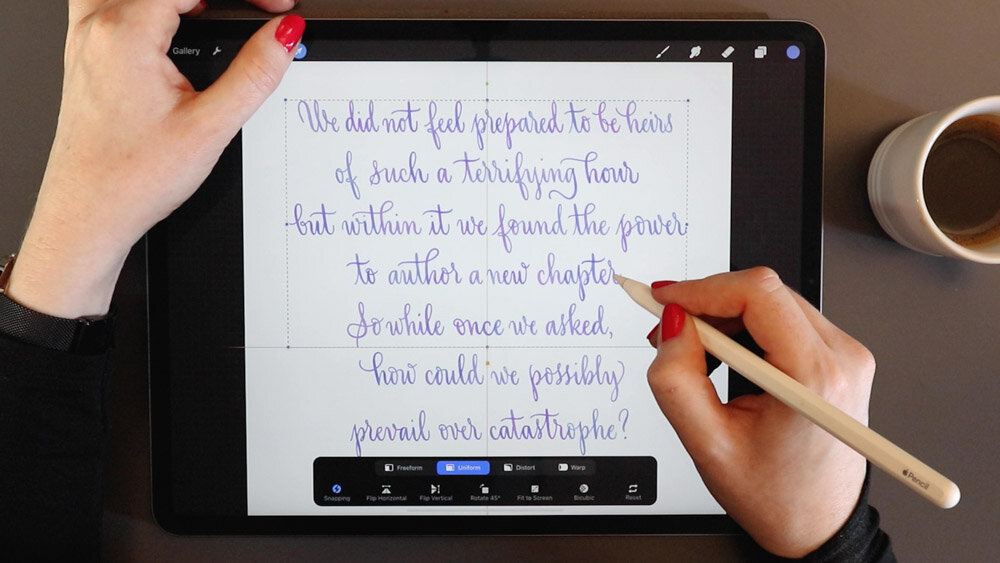 Gallery
We did not feel prepared to be heirs
of such a terrifying hour
but within it we found the power
to author a new chapter
So while once we asked,
how could we possibly
prevail over catastrophe?
Freeform Uniform Distort Warp
Snapping Flip Horizontal Flip Vertical Rotate 45° Fit to Screen Bicubic Reset
Pencil